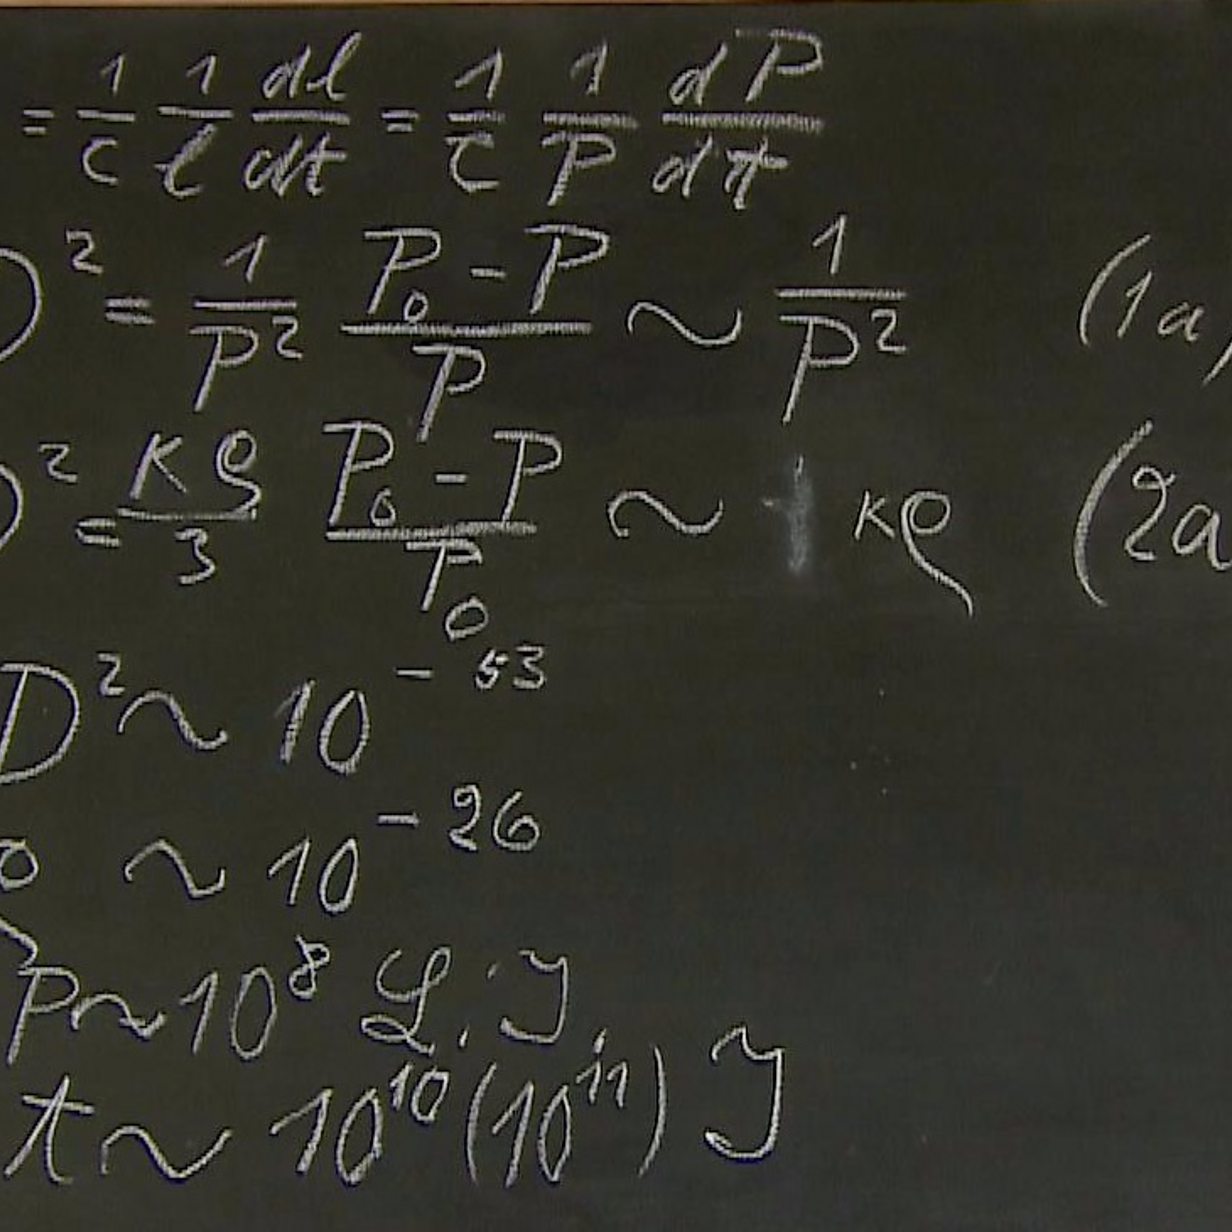 = 1/c 1/l dl/dt = 1/c 1/P dP/dt
)² = 1/P² (P₀ - P)/P ~ 1/P² (1a)
)² = κρ/3 (P₀ - P)/P₀ ~ κρ (2a
D² ~ 10⁻⁵³
ρ ~ 10⁻²⁶
P ~ 10⁸ L.J.
t ~ 10¹⁰(10¹¹) J